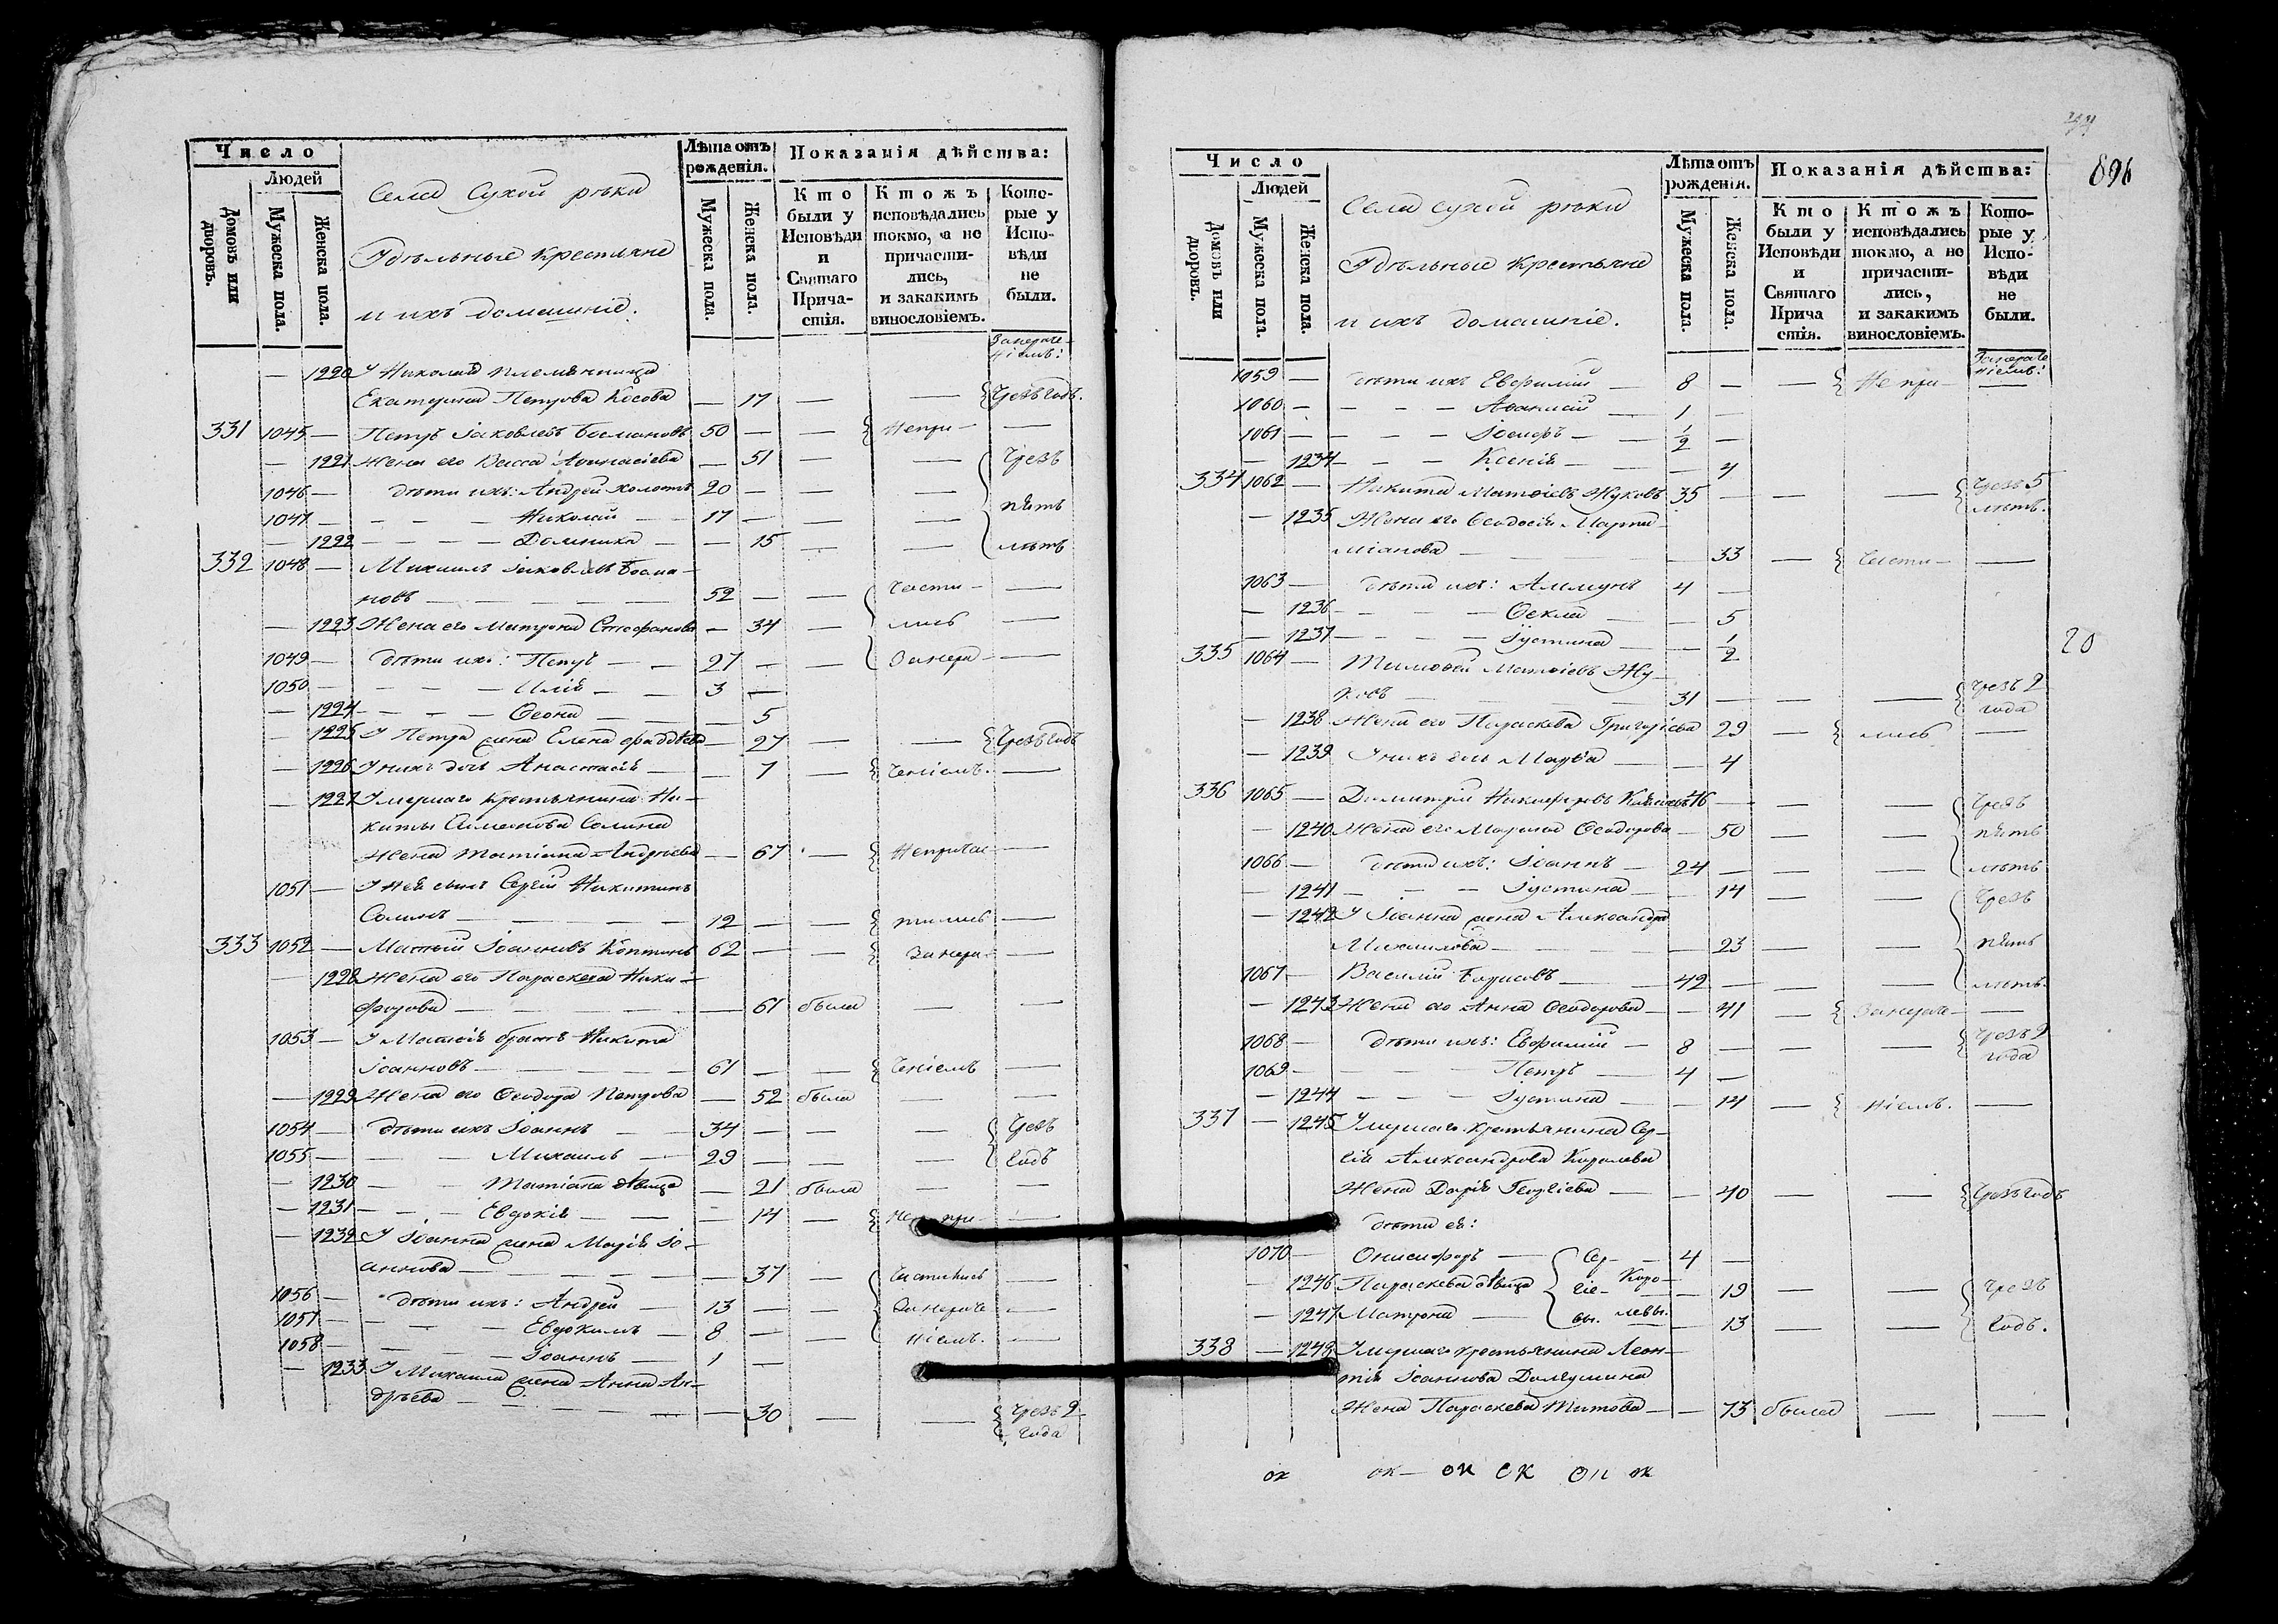 Число
Людей
Домовъ или дворовъ.
Мужеска пола.
Женска пола.
Села Сухой рѣки
Удѣльные крестьяне
и ихъ домашніе.
Лѣта отъ рожденія.
Мужеска пола.
Женска пола.
Показанія дѣйства:
Кто были у Исповѣди и Святаго Причастія.
Ктожъ исповѣдались токмо, а не причастились, и закакимъ винословіемъ.
Которые у Исповѣди не были.
1220 У Николая племянница
Екатерина Петрова Косова — 17 — — Чрезъ годъ.
331 1045 — Петръ Іаковлевъ Босмановъ 50 — — Непри- —
— 1221 Жена его Васса Аѳанасіева — 51 — — Чрезъ
1046 — дѣти ихъ: Андрей холостъ 20 — — — пять
1047 — — — — Николай — 17 — — —
— 1222 — — — Домника — — 15 — — лѣтъ
332 1048 — Михаилъ Іаковлевъ Босма-
новъ — 52 — — части- —
— 1223 Жена его Матрона Стефанова — 34 — лись —
1049 — дѣти ихъ: Петръ — — 27 — — Занера- —
1050 — — — — Илія — — 3 —
— 1224 — — — Ѳеона — — 5
— 1225 У Петра жена Елена Фаддѣева — 27 — — Чрезъ годъ
— 1226 У нихъ дочь Анастасія — — 7 — ченіемъ. —
— 1227 Умершаго крестьянина Ни-
киты Симеонова Солина
Жена Татіана Андреева — 67 — Непричас- —
1051 — У нея сынъ Сергій Никитинъ
Солинъ — 12 — — тились —
333 1052 — Матѳій Іоанновъ Коптинъ 62 — — Занера- —
— 1228 Жена его Параскева Ники-
форова — — 61 была — —
1053 — У Матѳія братъ Никита
Іоанновъ — 61 — — ченіемъ —
— 1229 Жена его Ѳеодора Петрова — 52 была — —
1054 — дѣти ихъ Іоаннъ — — 34 — — — Чрезъ
1055 — — — Михаилъ — 29 — — — годъ
— 1230 — — Татіана дѣвица — 21 была — —
— 1231 — — Евдокія — — — 14 — Не при- —
— 1232 У Іоанна жена Марія Іо-
аннова — — 37 — частились —
1056 — дѣти ихъ: Андрей — 13 — — Занераче- —
1057 — — — Евдокимъ — 8 — — ніемъ. —
1058 — — — Іоаннъ — 1 —
— 1233 У Михаила жена Анна Ан-
дреева — — 30 — — Чрезъ 2
года
896
Число
Людей
Домовъ или дворовъ.
Мужеска пола.
Женска пола.
Села Сухой рѣки
Удѣльные крестьяне
и ихъ домашніе.
Лѣта отъ рожденія.
Мужеска пола.
Женска пола.
Показанія дѣйства:
Кто были у Исповѣди и Святаго Прича стія.
Ктожъ исповѣдались токмо, а не причастились, и закакимъ винословіемъ.
Которые у Исповѣди не были.
1059 — дѣти ихъ Евфимій — 8 — — Не при- —
1060 — — — — Аѳанасій — 1 —
1061 — — — — Іосифъ — — 1/2 —
— 1234 — — — Ксенія — — — 4
334 1062 — Никита Матѳіевъ Жуковъ 35 — — — Чрезъ 5
лѣтъ.
— 1235 Жена его Ѳеодосія Марти-
міанова — — 33 — части- —
1063 — дѣти ихъ: Аммунъ 4 —
— 1236 — — — Ѳекла — — 5
— 1237 — — — Іустина — — 1/2
20
335 1064 — Тимоѳей Матѳіевъ Жу-
ковъ — 31 — — — Чрезъ 2
года
— 1238 Жена его Параскева Григорьева 29 — лись —
— 1239 У нихъ дочь Марѳа — — 4
336 1065 — Димитрій Никифоровъ 46 — — — Чрезъ
— 1240 Жена его Марина Ѳеодорова — 50 — — пять
1066 — дѣти ихъ: Іоаннъ — 24 — — — лѣтъ
— 1241 — — — Іустина — — 14 — — Чрезъ
— 1242 У Іоанна жена Александра
Михаилова — — 23 — — пять
1067 — Василій Борисовъ — 42 — — — лѣтъ.
— 1243 Жена его Анна Ѳеодорова — — 41 — Занераче- —
1068 — дѣти ихъ: Евфимій — 8 — — — Чрезъ 2
года
1069 — — — Петръ — 4 —
— 1244 — — — Іустина — — 14 — ніемъ. —
337 — 1245 Умершаго крестьянина Сер-
гія Александрова Королева
Жена Дарія Георгіева — — 40 — — Чрезъ годъ
дѣти ея:
1070 — Онисифоръ — Сер- — 4 —
— 1246 Параскева дѣвица гіе- Коро- — 19 — — Чрезъ
— 1247 Матрона — вы. левы. — 13 — — годъ.
338 — 1248 Умершаго крестьянина Леон-
тія Іоаннова
Жена Параскева Титова — — 73 была — —
ок ок — ок ок ок ок